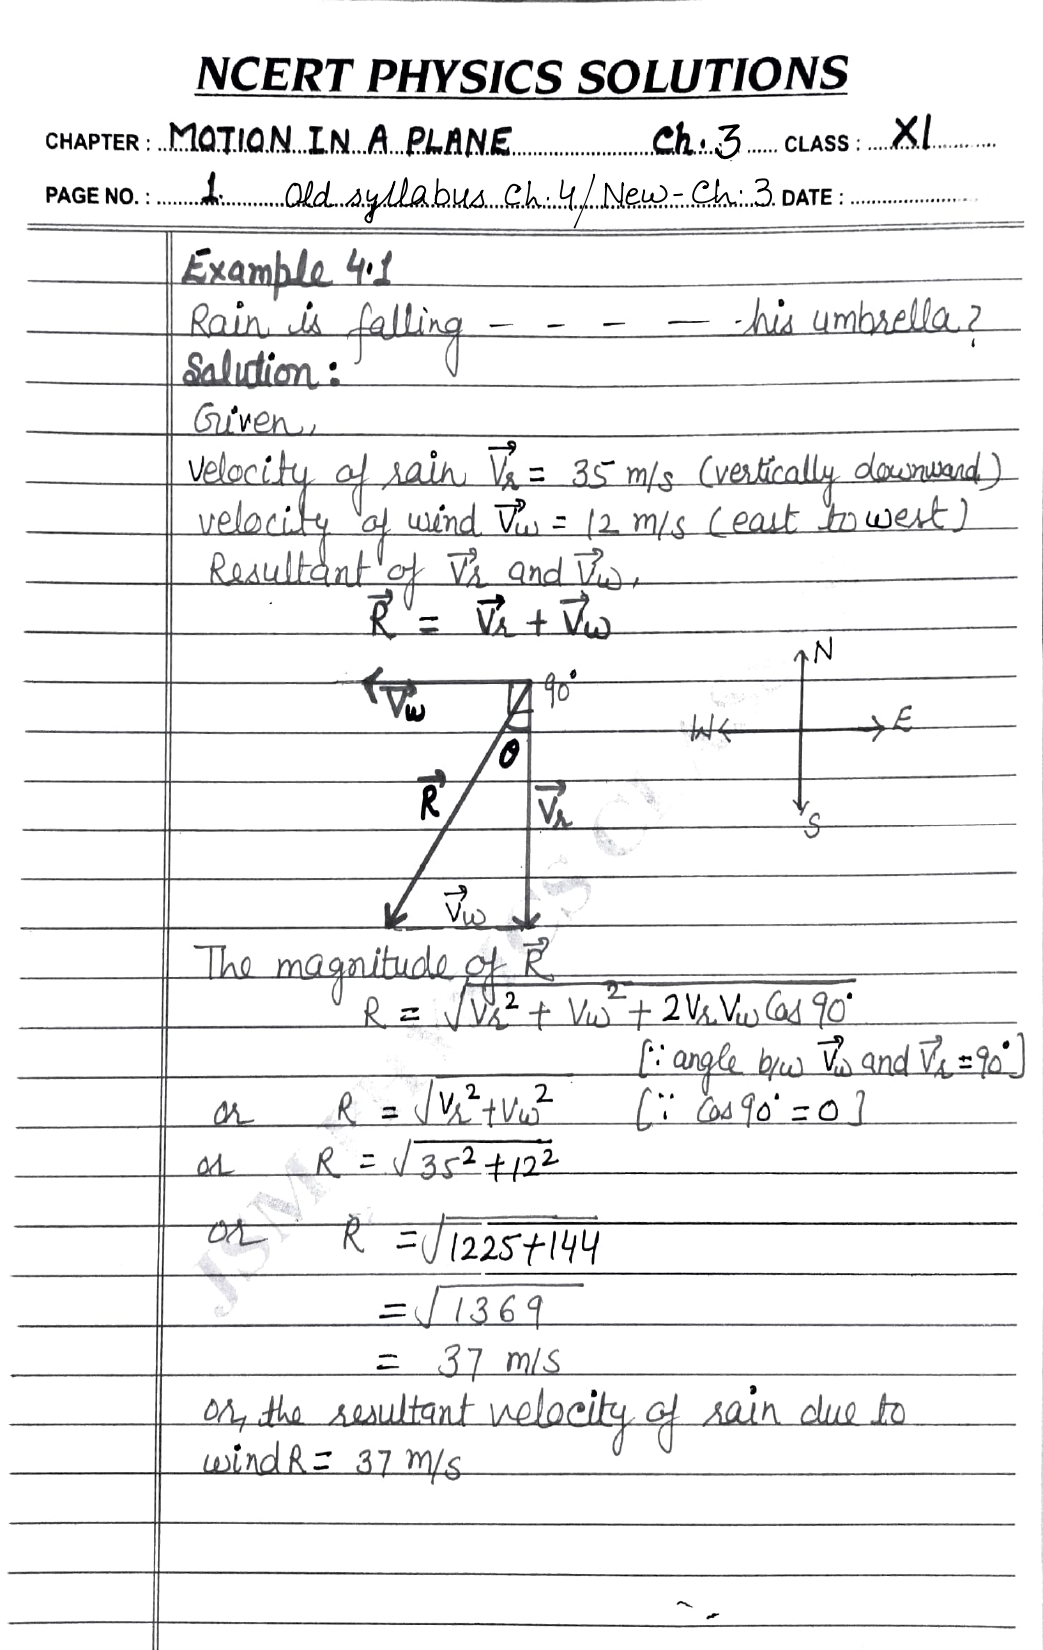 NCERT PHYSICS SOLUTIONS
CHAPTER : MOTION IN A PLANE Ch. 3 CLASS : XI
PAGE NO. : 1. Old syllabus Ch: 4/New-Ch: 3. DATE :
Example 4.1
Rain is falling - - - - his umbrella?
Solution :
Given,
Velocity of rain V⃗r = 35 m/s (vertically downward)
velocity of wind V⃗w = 12 m/s (east to west)
Resultant of V⃗r and V⃗w,
R⃗ = V⃗r + V⃗w
N
90°
V⃗w
W E
θ
R⃗ V⃗r
S
V⃗w
The magnitude of R⃗
R = √Vr² + Vw² + 2VrVw Cos 90°
[∵ angle b/w V⃗w and V⃗r = 90°]
or R = √Vr² + Vw² [∵ Cos 90° = 0]
or R = √35² + 12²
or R = √1225 + 144
= √1369
= 37 m/s
or, the resultant velocity of rain due to
wind R = 37 m/s